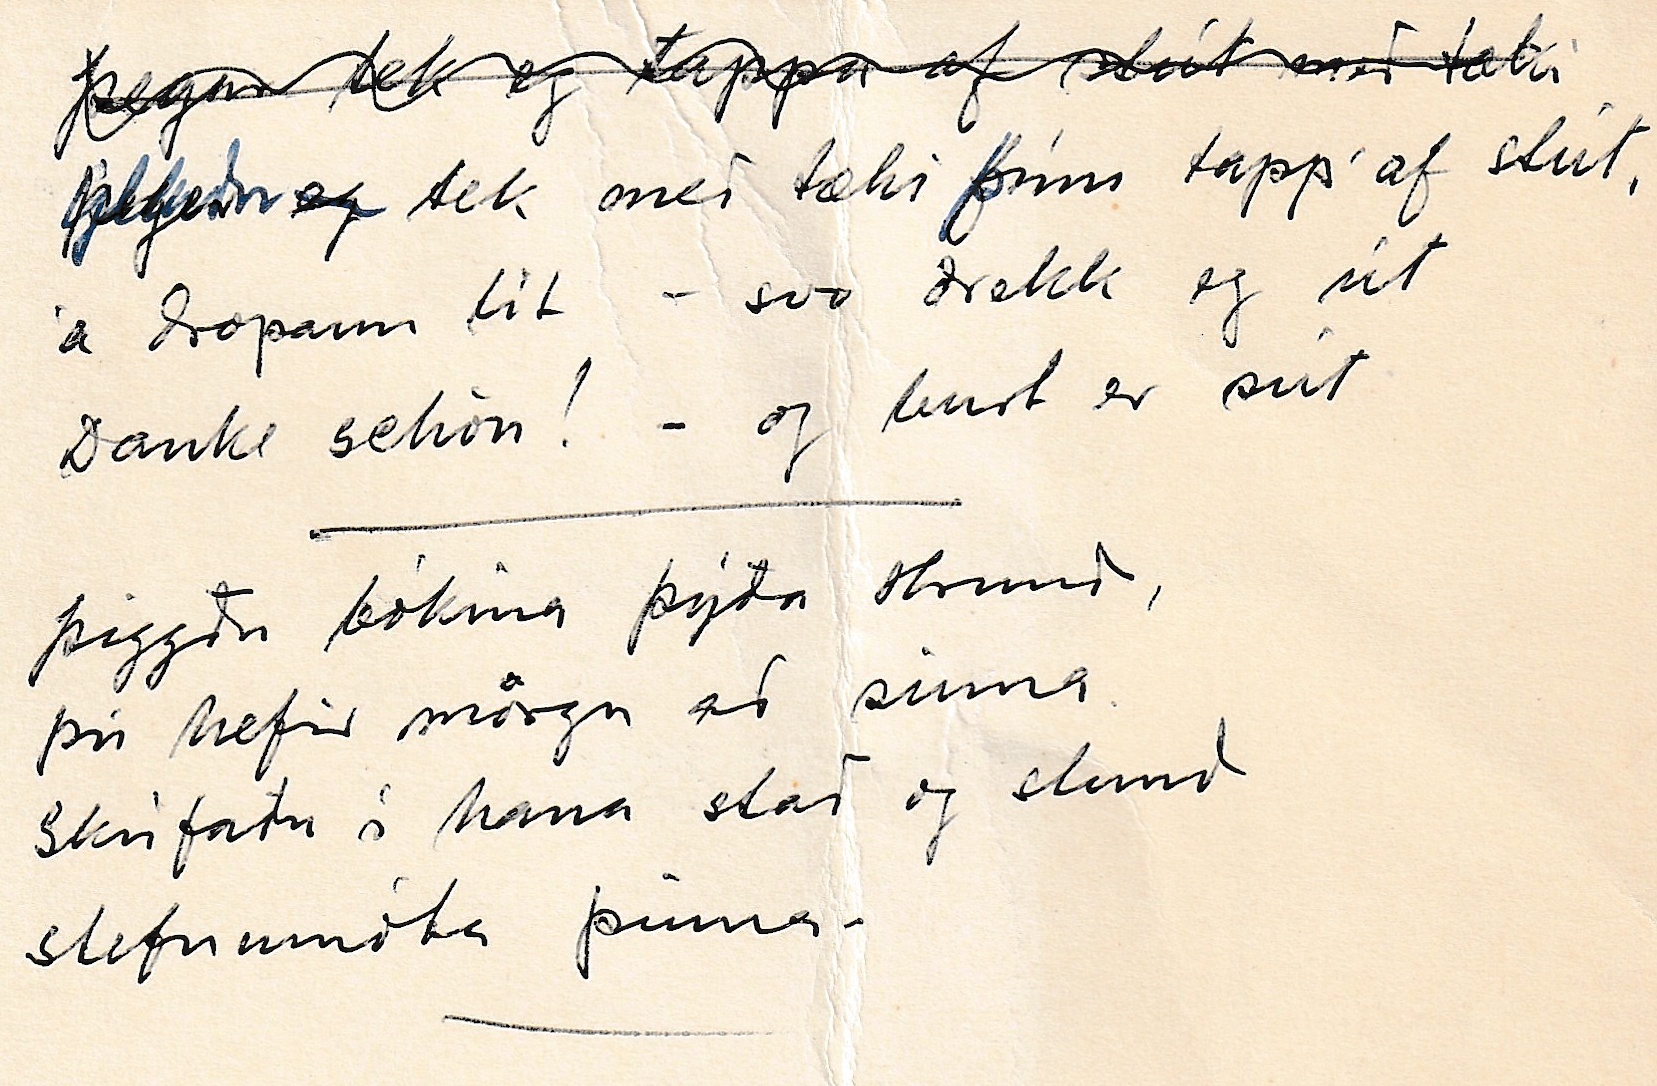 Þegar tek eg tappa af stút með tæki
tek með tæki þínu tapp' af stút,
á dropann lít - svo drekk eg út
Danke schön! - og burt er sút
þiggðu bókina þýða Hrund,
þú hefir mörgu að sinna
Skrifaðu í hana stað og stund
stefnumóta þinna-